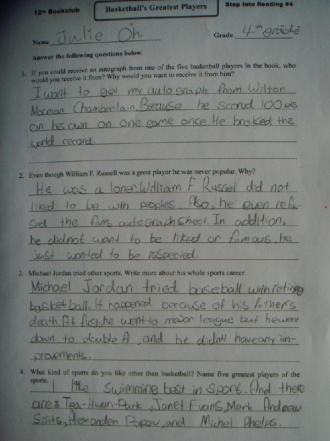 12th Bookclub Basketball's Greatest Players Step Into Reading #4
Name Julie Oh Grade 4th grade
Answer the following questions below.
1. If you could receive an autograph from one of the five basketball players in the book, who
would you receive it from? Why would you want to receive it from him?
I want to get my autograph from Wilton
Norman Chamberlain. Because he scored 100 pts
on his own on one game once. He broked the
world record.
2. Even though William F. Russell was a great player he was never popular. Why?
He was a loner. William F Russel did not
liked to be with peoples. Also, he even refu
sed the fans autograph sheet. In addition,
he did not want to be liked or famous, he
just wanted to be respected.
3. Michael Jordan tried other sports. Write more about his whole sports career.
Michael Jordan tried baseball with retiring
basketball. It happened because of his father's
death. At first, he went to major league but he went
down to double A, and he didn't have any im-
provements.
4. What kind of sports do you like other than basketball? Name five greatest players of the
sports.
I like swimming best in sports. And there
are: Tea-Hwan-Park, Janet Evans, Mark Andrew
Spits, Alexander Popov, and Michel Phelps.